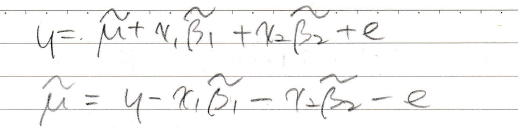 y = μ̃ + x₁β̃₁ + x₂β̃₂ + e
μ̃ = y - x₁β̃₁ - x₂β̃₂ - e